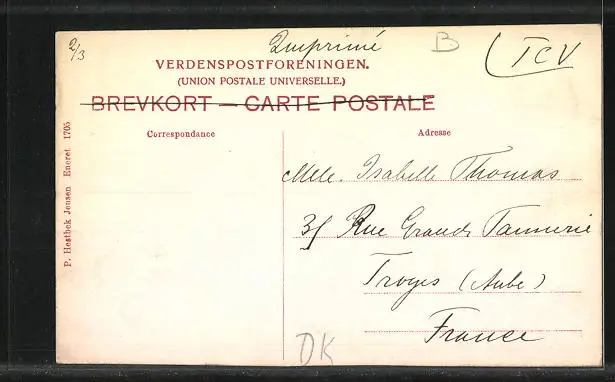 2/3
Imprimé
B
TCV
VERDENSPOSTFORENINGEN.
(UNION POSTALE UNIVERSELLE.)
BREVKORT — CARTE POSTALE
Correspondance
Adresse
P. Hestbek Jensen Eneret 1705
Melle. Isabelle Thomas
Rue Grande Tannerie
Troyes (Aube)
France
DK